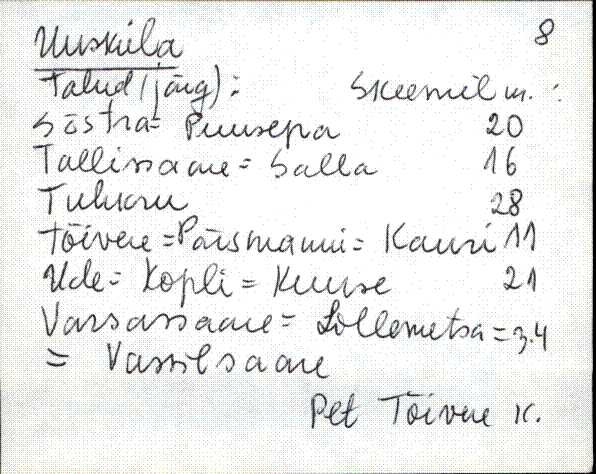 Uuskula 8
Talud (järg): Skeemil nr.:
Sõstra = Puusepa 20
Tallissaare = Salla 16
Tuhkru 28
Tõivere = Pärsmanni = Kauri 11
Ude = Kopli = Kuuse 21
Varsassaare = Lollemetsa = 3.4
= Vassilsaare
Pet Tõivere k.